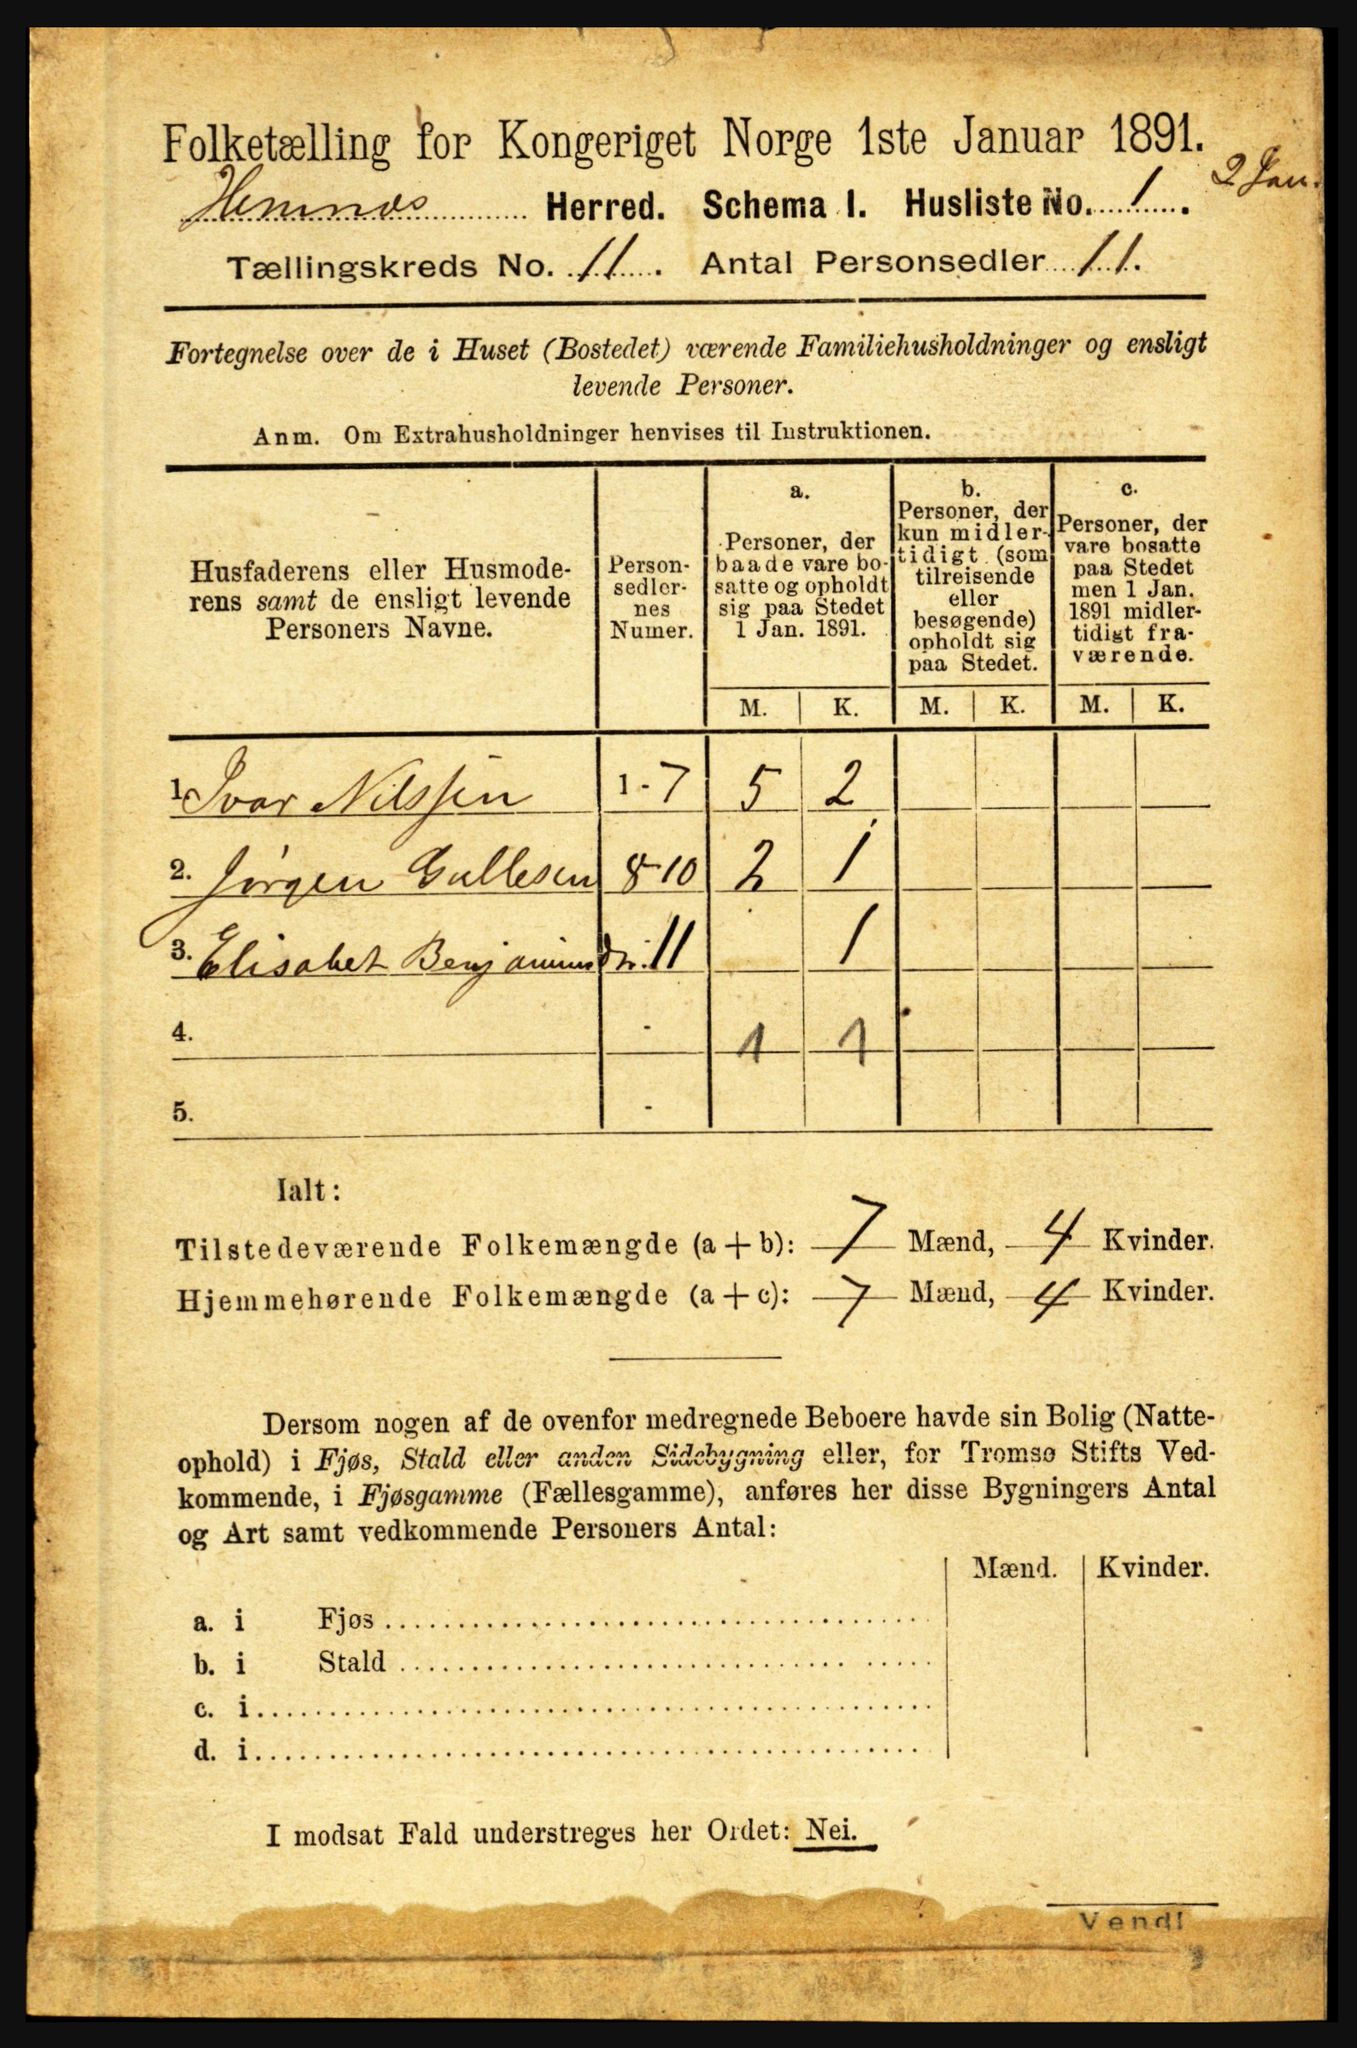 Folketælling for Kongeriget Norge 1ste Januar 1891.
2 Jan.
Hemnæs Herred. Schema I. Husliste No. 1.
Tællingskreds No. 11. Antal Personsedler 11.
Fortegnelse over de i Huset (Bostedet) værende Familiehusholdninger og ensligt
levende Personer.
Anm. Om Extrahusholdninger henvises til Instruktionen.
Husfaderens eller Husmode-
rens samt de ensligt levende
Personers Navne.
Person-
sedler-
nes
Numer.
a.
Personer, der
baade vare bo-
satte og opholdt
sig paa Stedet
1 Jan. 1891.
b.
Personer, der
kun midler-
tidigt (som
tilreisende
eller
besøgende)
opholdt sig
paa Stedet.
c.
Personer, der
vare bosatte
paa Stedet
men 1 Jan.
1891 midler-
tidigt fra-
værende.
M. K. M. K. M. K.
1. Ivar Nilssen 1-7 5 2
2. Jørgen Gullesen 8-10 2 1
3. Elisabet Benjaminsdtr. 11 1
4. - 1 1
5. -
Ialt:
Tilstedeværende Folkemængde (a+b): 7 Mænd, 4 Kvinder.
Hjemmehørende Folkemængde (a+c): 7 Mænd, 4 Kvinder.
Dersom nogen af de ovenfor medregnede Beboere havde sin Bolig (Natte-
ophold) i Fjøs, Stald eller anden Sidebygning eller, for Tromsø Stifts Ved-
kommende, i Fjøsgamme (Fællesgamme), anføres her disse Bygningers Antal
og Art samt vedkommende Personers Antal:
Mænd. Kvinder.
a. i Fjøs
b. i Stald
c. i
d. i
I modsat Fald understreges her Ordet: Nei.
Vend!